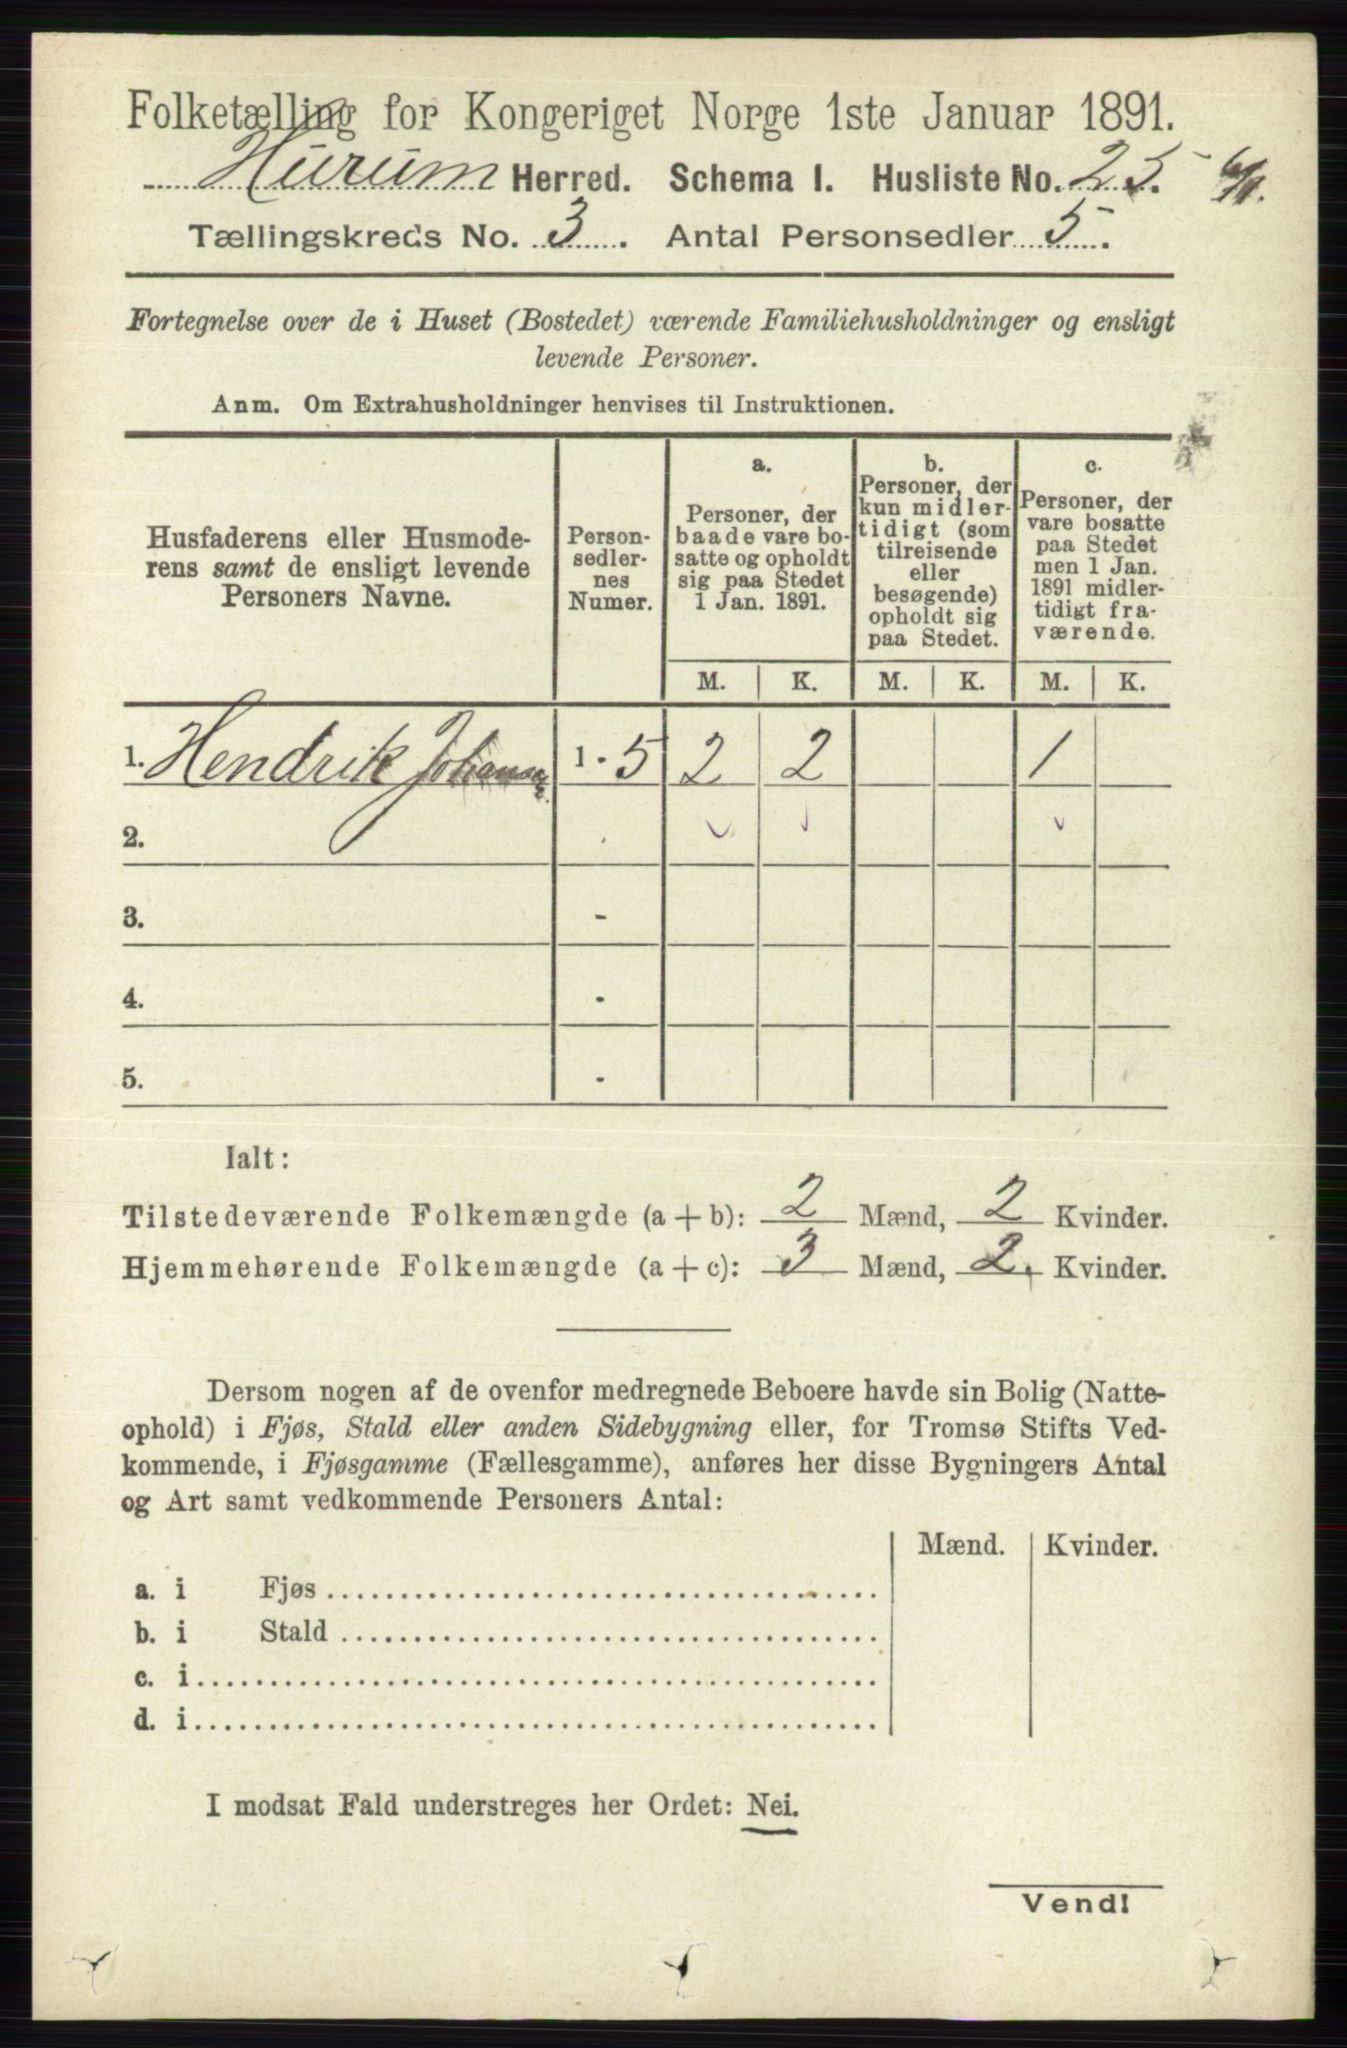 Folketælling for Kongeriget Norge 1ste Januar 1891.
Hurum Herred. Schema I. Husliste No. 25.
Tællingskreds No. 3. Antal Personsedler 5.
Fortegnelse over de i Huset (Bostedet) værende Familiehusholdninger og ensligt
levende Personer.
Anm. Om Extrahusholdninger henvises til Instruktionen.
Husfaderens eller Husmode-
rens samt de ensligt levende
Personers Navne.
Person-
sedler-
nes
Numer.
a.
Personer, der
baade vare bo-
satte og opholdt
sig paa Stedet
1 Jan. 1891.
b.
Personer, der
kun midler-
tidigt (som
tilreisende
eller
besøgende)
opholdt sig
paa Stedet.
c.
Personer, der
vare bosatte
paa Stedet
men 1 Jan.
1891 midler-
tidigt fra-
værende.
M. K. M. K. M. K.
1. Hendrik Johansen 1 - 5 2 2 1
2.
3. -
4. -
5. -
Ialt:
Tilstedeværende Folkemængde (a + b): 2 Mænd, 2 Kvinder.
Hjemmehørende Folkemængde (a + c): 3 Mænd, 2. Kvinder.
Dersom nogen af de ovenfor medregnede Beboere havde sin Bolig (Natte-
ophold) i Fjøs, Stald eller anden Sidebygning eller, for Tromsø Stifts Ved-
kommende, i Fjøsgamme (Fællesgamme), anføres her disse Bygningers Antal
og Art samt vedkommende Personers Antal:
Mænd. Kvinder.
a. i Fjøs
b. i Stald
c. i
d. i
I modsat Fald understreges her Ordet: Nei.
Vend!